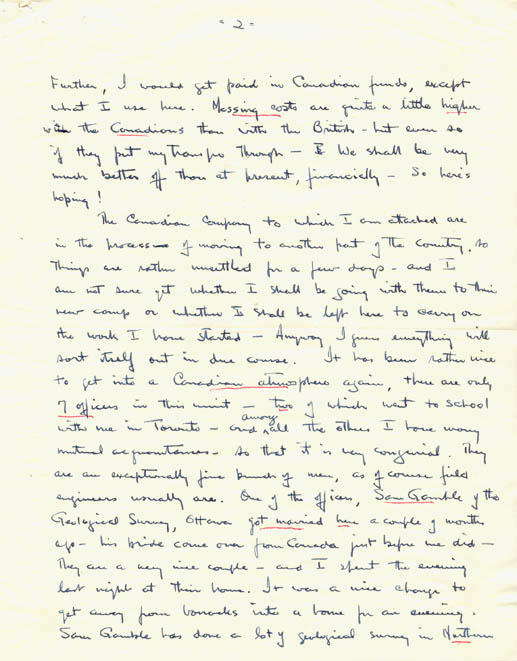 - 2 -
Further, I would get paid in Canadian funds, except
what I use here. Messing costs are quite a little higher
with the Canadians than with the British - but even so
if they put my transfer through - We shall be very
much better off than at present, financially - So here's
hoping!
The Canadian Company to which I am attached are
in the process of moving to another part of the Country, so
things are rather unsettled for a few days - and I
am not sure yet whether I shall be going with them to their
new camp or whether I shall be left here to carry on
the work I have started - Anyway I guess everything will
sort itself out in due course. It has been rather nice
to get into a Canadian atmosphere again, there are only
7 officers in this unit - two of which went to school
with me in Toronto - and among all the others I have many
mutual acquaintances - so that it is very congenial. They
are an exceptionally fine bunch of men, as of course field
engineers usually are. One of the officers, Sam Gamble of the
Geological Survey, Ottawa got married here a couple of months
ago - his bride came over from Canada just before we did -
They are a very nice couple - and I spent the evening
last night at their home. It was a nice change to
get away from barracks into a home for an evening.
Sam Gamble has done a lot of geological survey in Northern